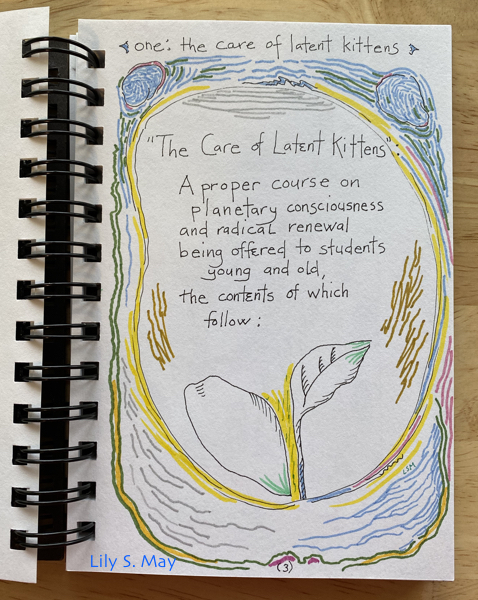 one: the care of latent kittens
"The Care of Latent Kittens":
A proper course on
planetary consciousness
and radical renewal
being offered to students
young and old,
the contents of which
follow:
LSM
Lily S. May
(3)